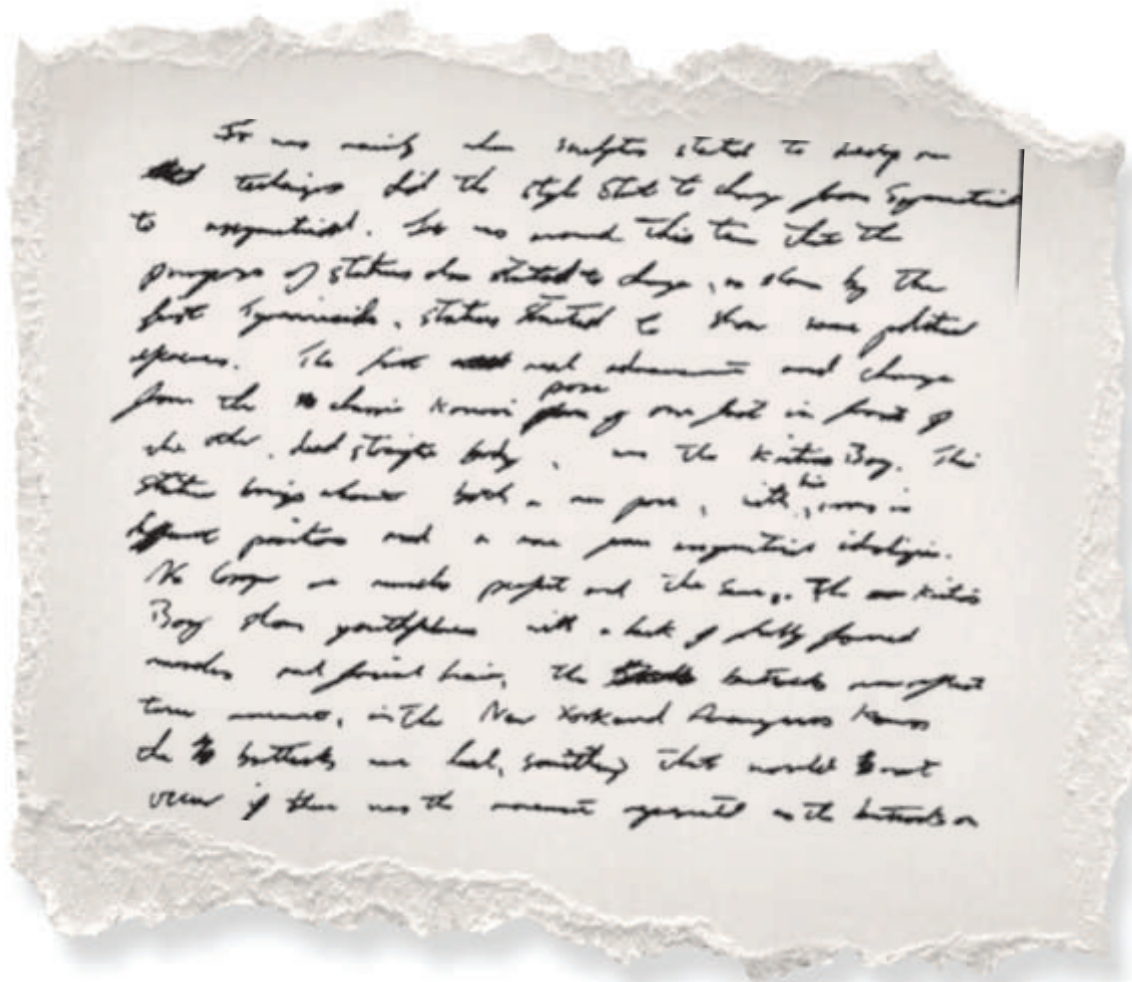 It was mainly when sculptors started to develop new
techniques did the style start to change from Symmetrical
to asymmetrical. It was around this time that the
purpose of statues also started to change, as shown by the
first Tyrannicide, statues started to show some political
The first real advancement and change
from the classic Kouroi pose of one foot in front of
the other, dead straight body, was the Kritios Boy. This
statue brings about both a new pose, with his arms in
different positions and a new more asymmetrical ideologies.
No longer are muscles perfect and the same. The Kritios
Boy shows youthfulness with a lack of fully formed
muscles and facial hair, the buttocks now reflect
torso movement, in the New York and Anavyssos Kouros
the buttocks are level, something that would not
occur if there was the movement represented as the buttocks on